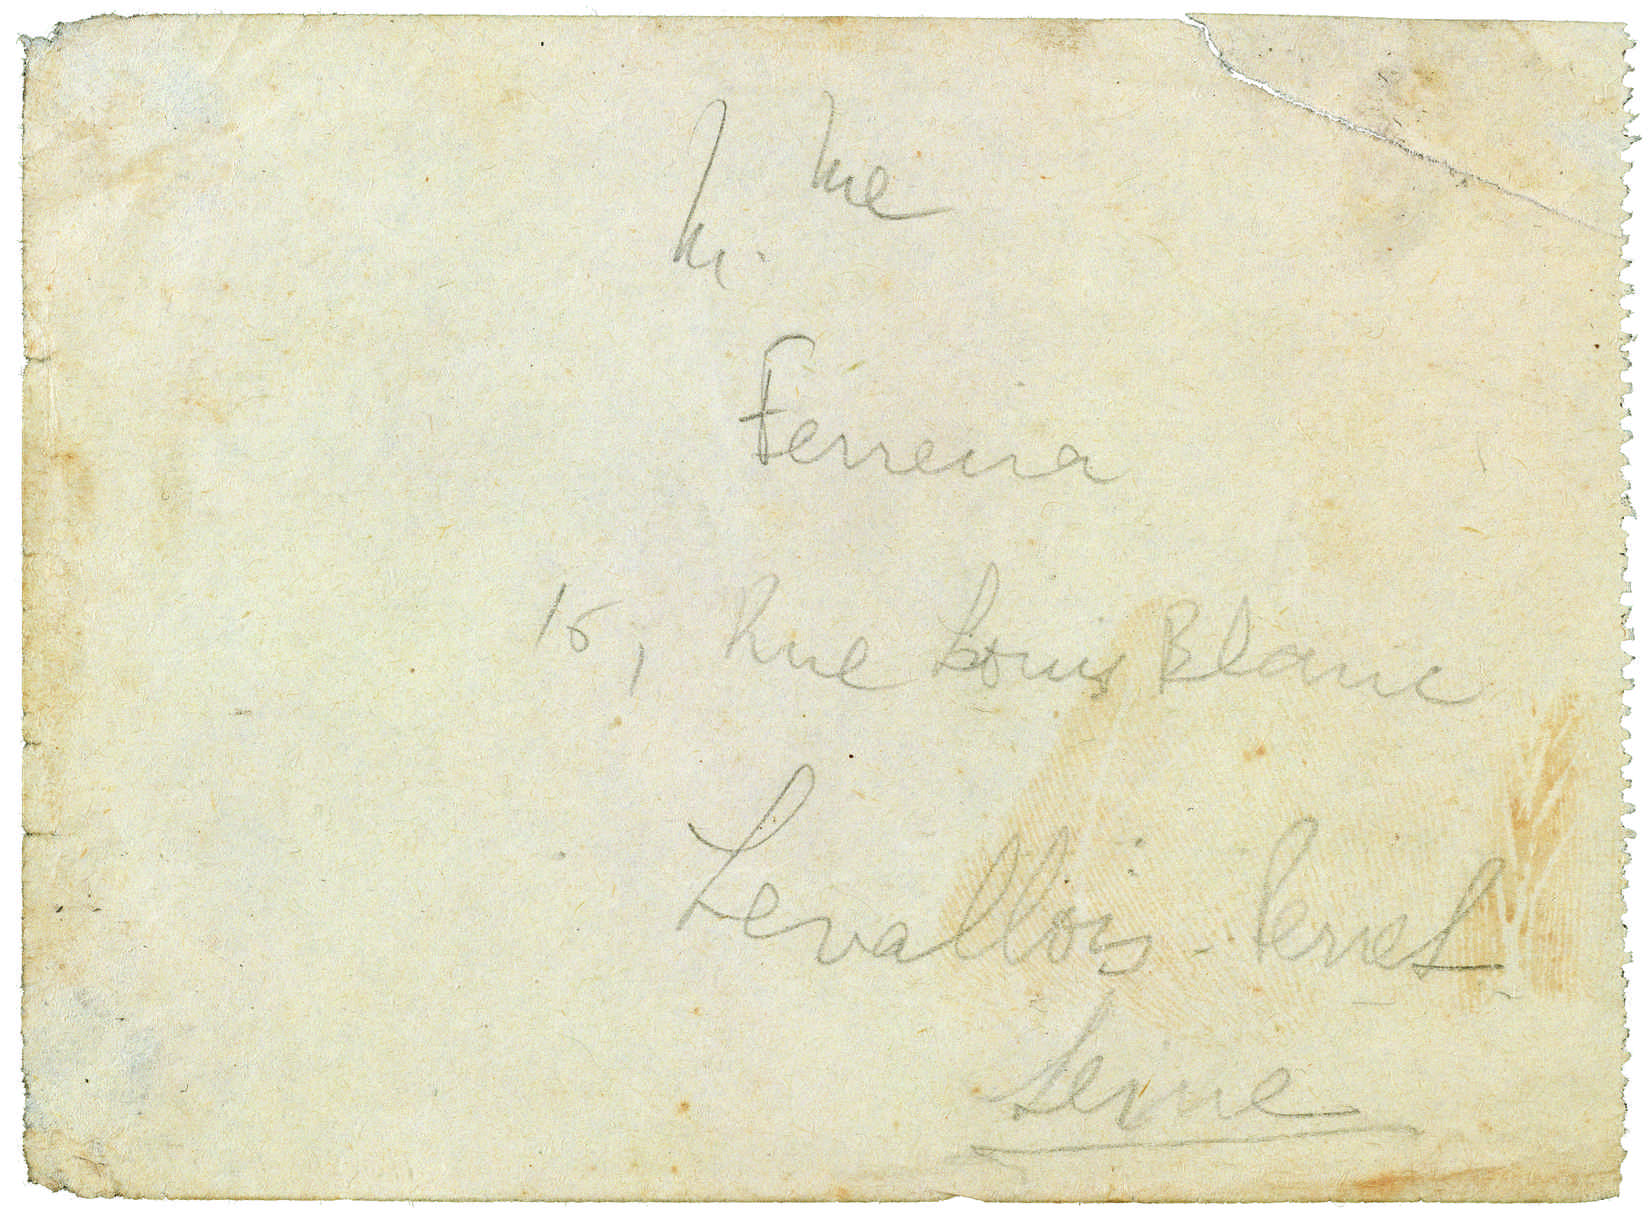 M. Me
Ferreira
15, Rue Louis Blanc
Levallois-Perret
Seine